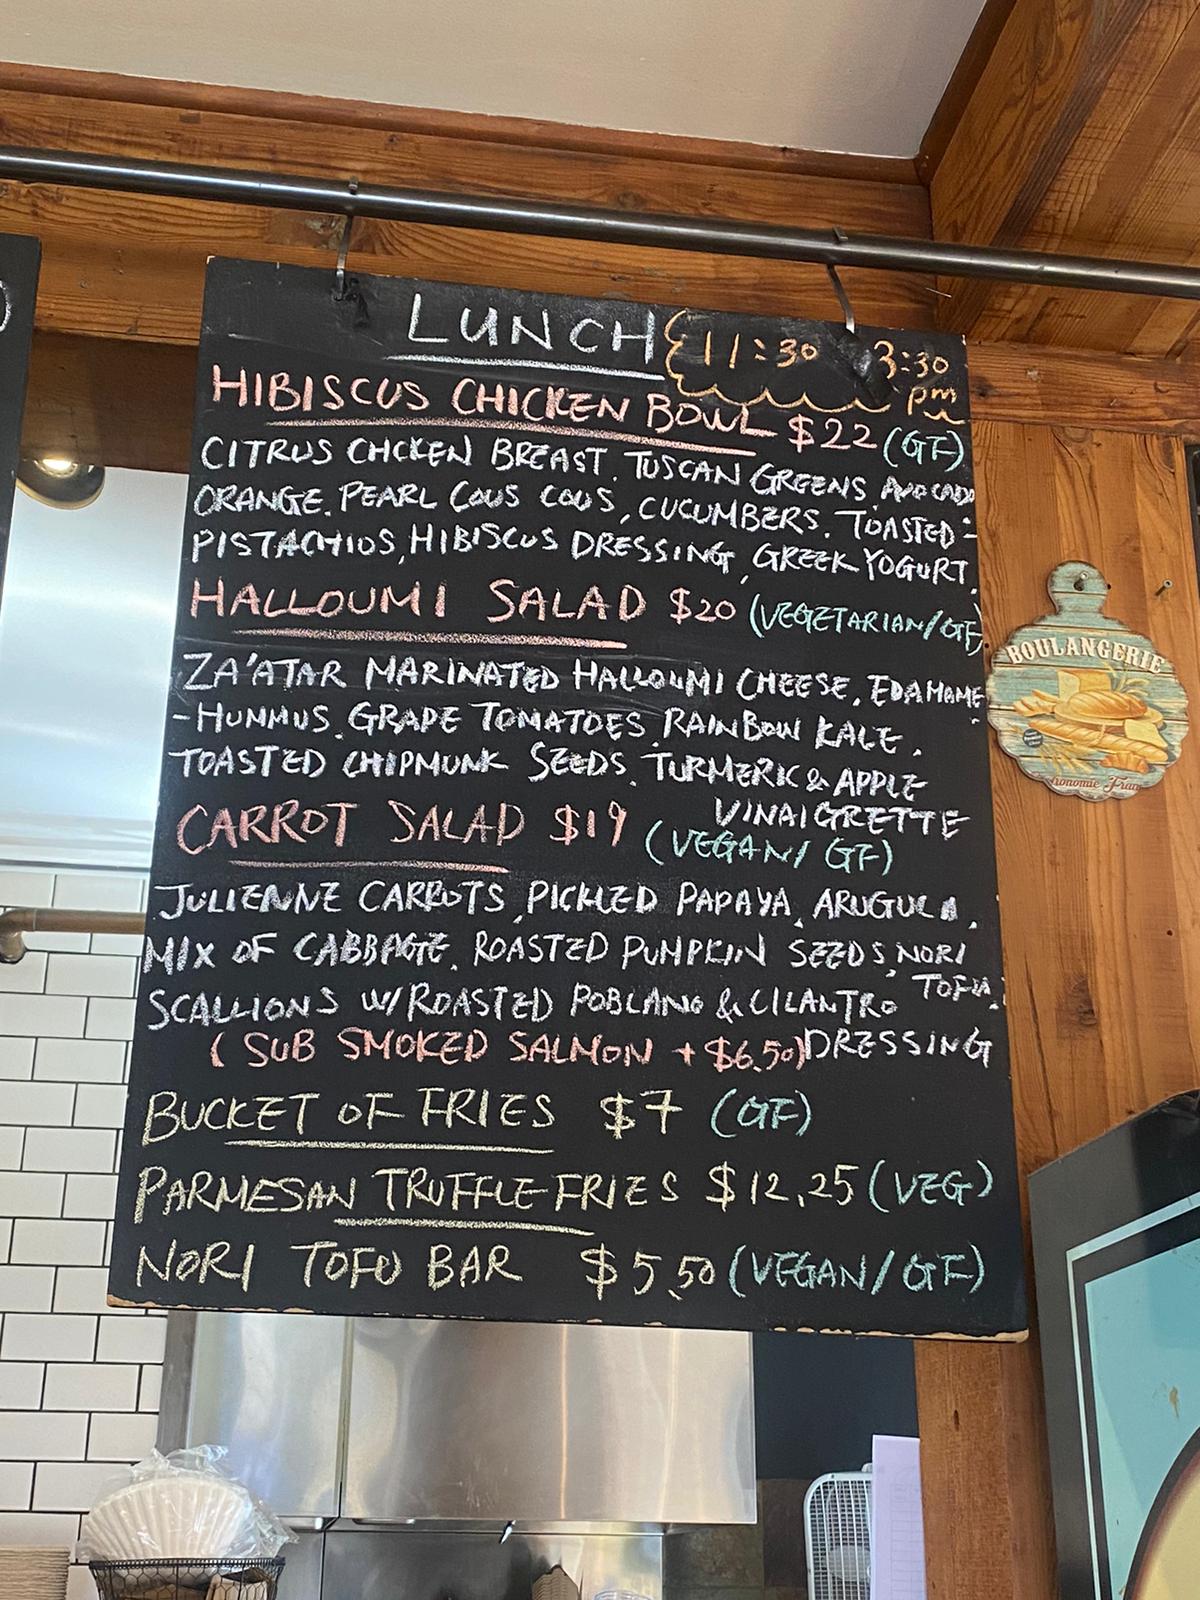 LUNCH 11:30 3:30
pm
HIBISCUS CHICKEN BOWL $22 (GF)
CITRUS CHCKEN BREAST, TUSCAN GREENS, AVOCADO
ORANGE, PEARL COUS COUS, CUCUMBERS, TOASTED-
PISTACHIOS, HIBISCUS DRESSING, GREEK YOGURT.
HALLOUMI SALAD $20 (VEGETARIAN/GF)
ZA'ATAR MARINATED HALLOUMI CHEESE, EDAMAME
-HUMMUS, GRAPE TOMATOES, RAINBOW KALE,
TOASTED CHIPMUNK SEEDS, TURMERIC & APPLE
VINAIGRETTE
CARROT SALAD $19 (VEGAN/ GF)
JULIENNE CARROTS, PICKLED PAPAYA, ARUGULA,
MIX OF CABBAGE, ROASTED PUMPKIN SEEDS, NORI
TOFU,
SCALLIONS W/ROASTED POBLANO & CILANTRO
DRESSING
( SUB SMOKED SALMON + $6.50)
BUCKET OF FRIES $7 (GF)
PARMESAN TRUFFLE FRIES $12,25 (VEG)
NORI TOFU BAR $5.50 (VEGAN/GF)
BOULANGERIE